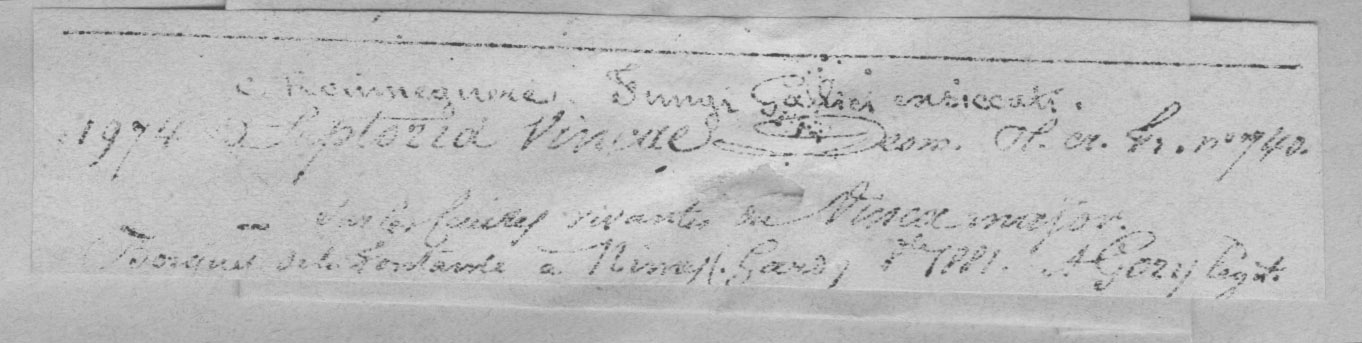 C. Roumeguere. Fungi Gallici exsiccati.
1974 Septoria Vincae Desm. Pl. cr. Fr. no 740.
Sur les feuilles vivantes du Vinca major.
Bosquet de la Fontaine à Nimes (Gard) 1881. A Gory legit.